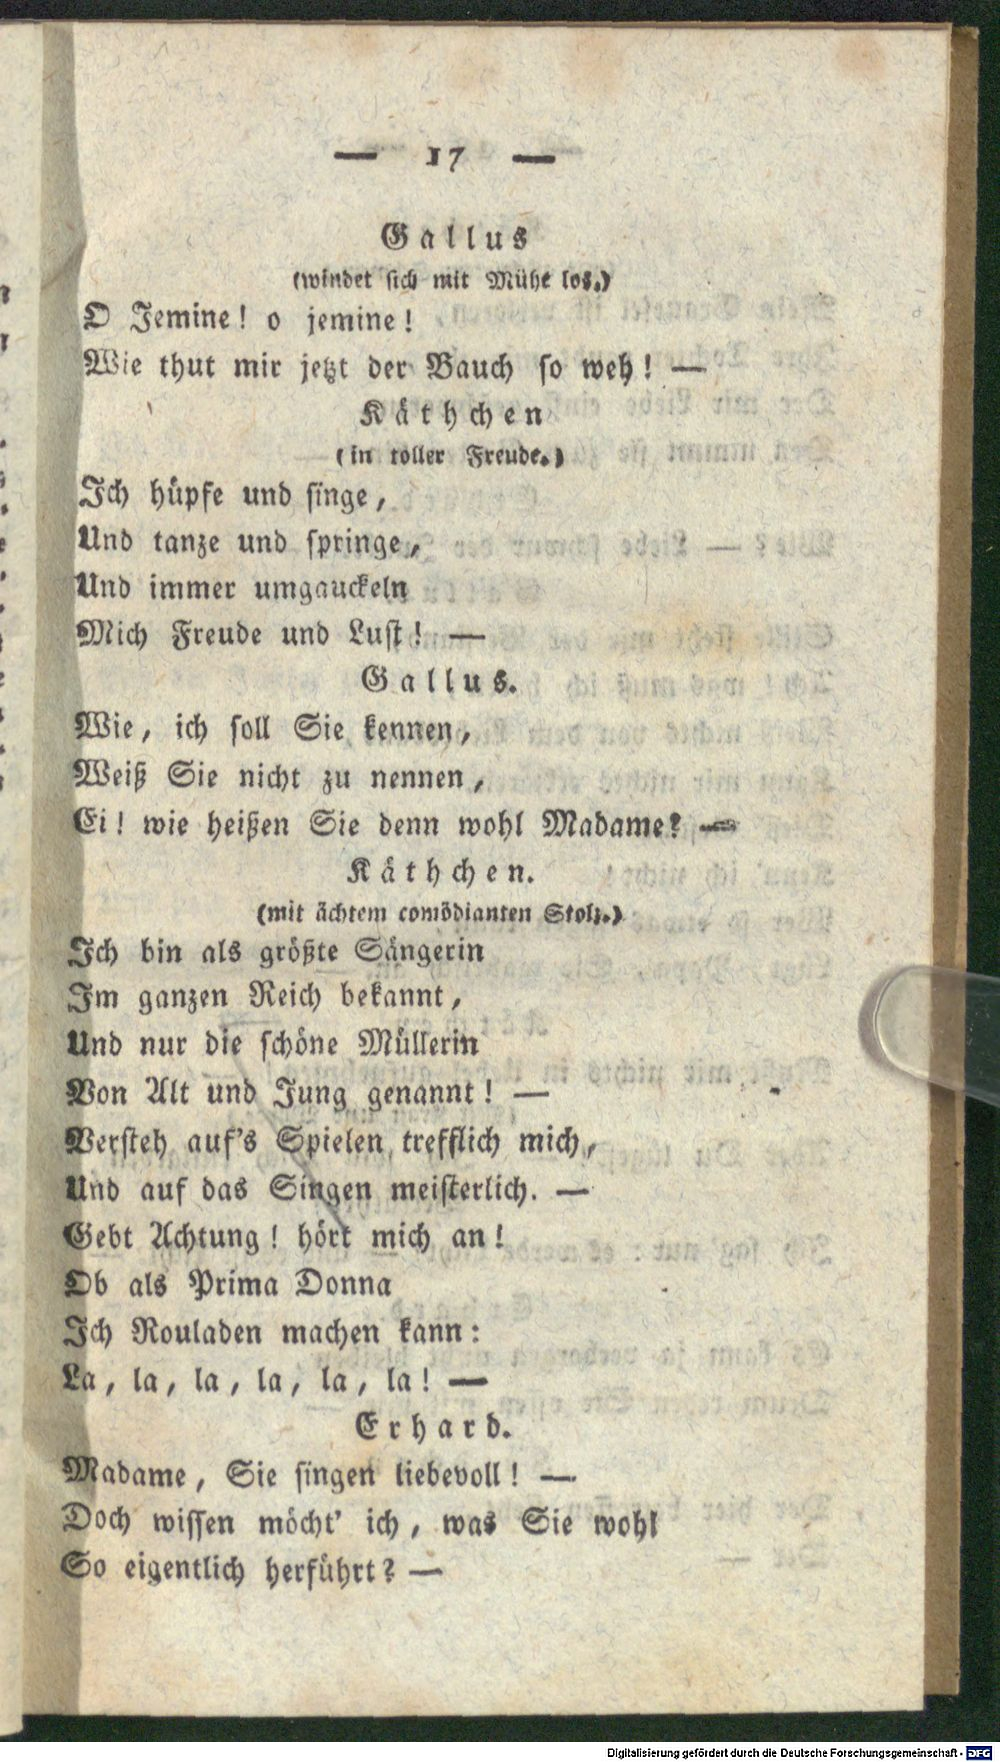 — 17 —
Gallus
(windet sich mit Mühe los.)
O Jemine! o jemine!
Wie thut mir jetzt der Bauch so weh! —
Käthchen
(in toller Freude.)
Ich hüpfe und singe,
Und tanze und springe,
Und immer umgauckeln
Mich Freude und Lust! —
Gallus.
Wie, ich soll Sie kennen,
Weiß Sie nicht zu nennen,
Ei! wie heißen Sie denn wohl Madame? —
Käthchen.
(mit ächtem comödianten Stolz.)
Ich bin als größte Sängerin
Im ganzen Reich bekannt,
Und nur die schöne Müllerin
Von Alt und Jung genannt! —
Versteh auf's Spielen trefflich mich,
Und auf das Singen meisterlich. —
Gebt Achtung! hört mich an!
Ob als Prima Donna
Ich Rouladen machen kann:
La, la, la, la, la, la! —
Erhard.
Madame, Sie singen liebevoll! —
Doch wissen möcht' ich, was Sie wohl
So eigentlich herführt? —
Digitalisierung gefördert durch die Deutsche Forschungsgemeinschaft - DFG